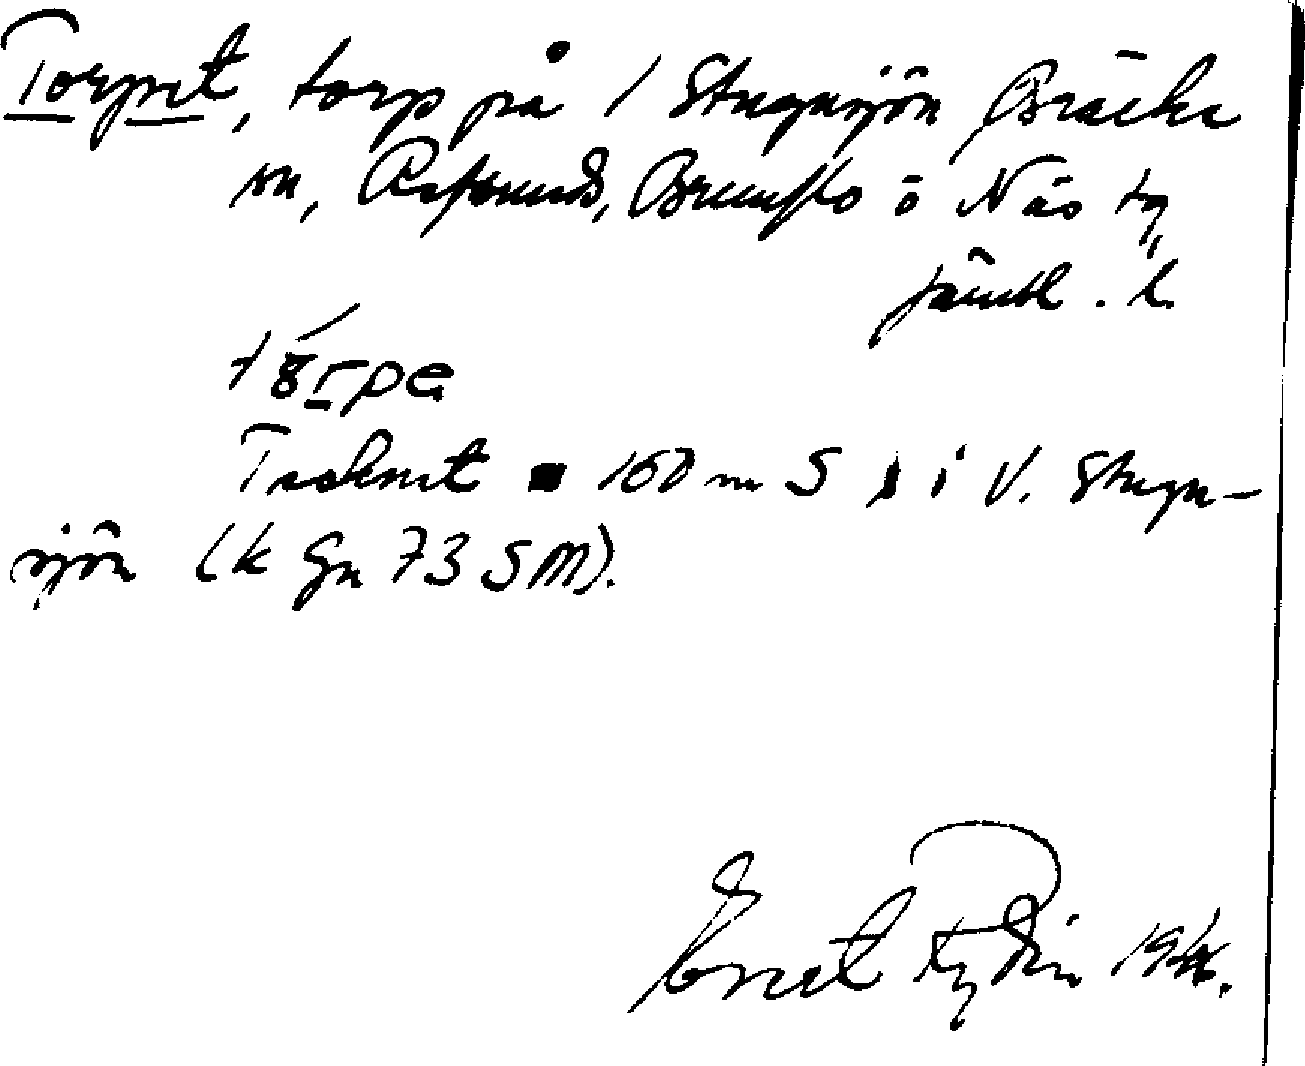 Torpet, torp på 1 Stugusjön Bräcke
sn, Refsunds, Brunflo o Näs tg
Jämtl. l.
tórpe
Tecknet ■ 150 m S s i V. Stugu-
sjön (k Gn 73 SM).
Ernst Rydin 194